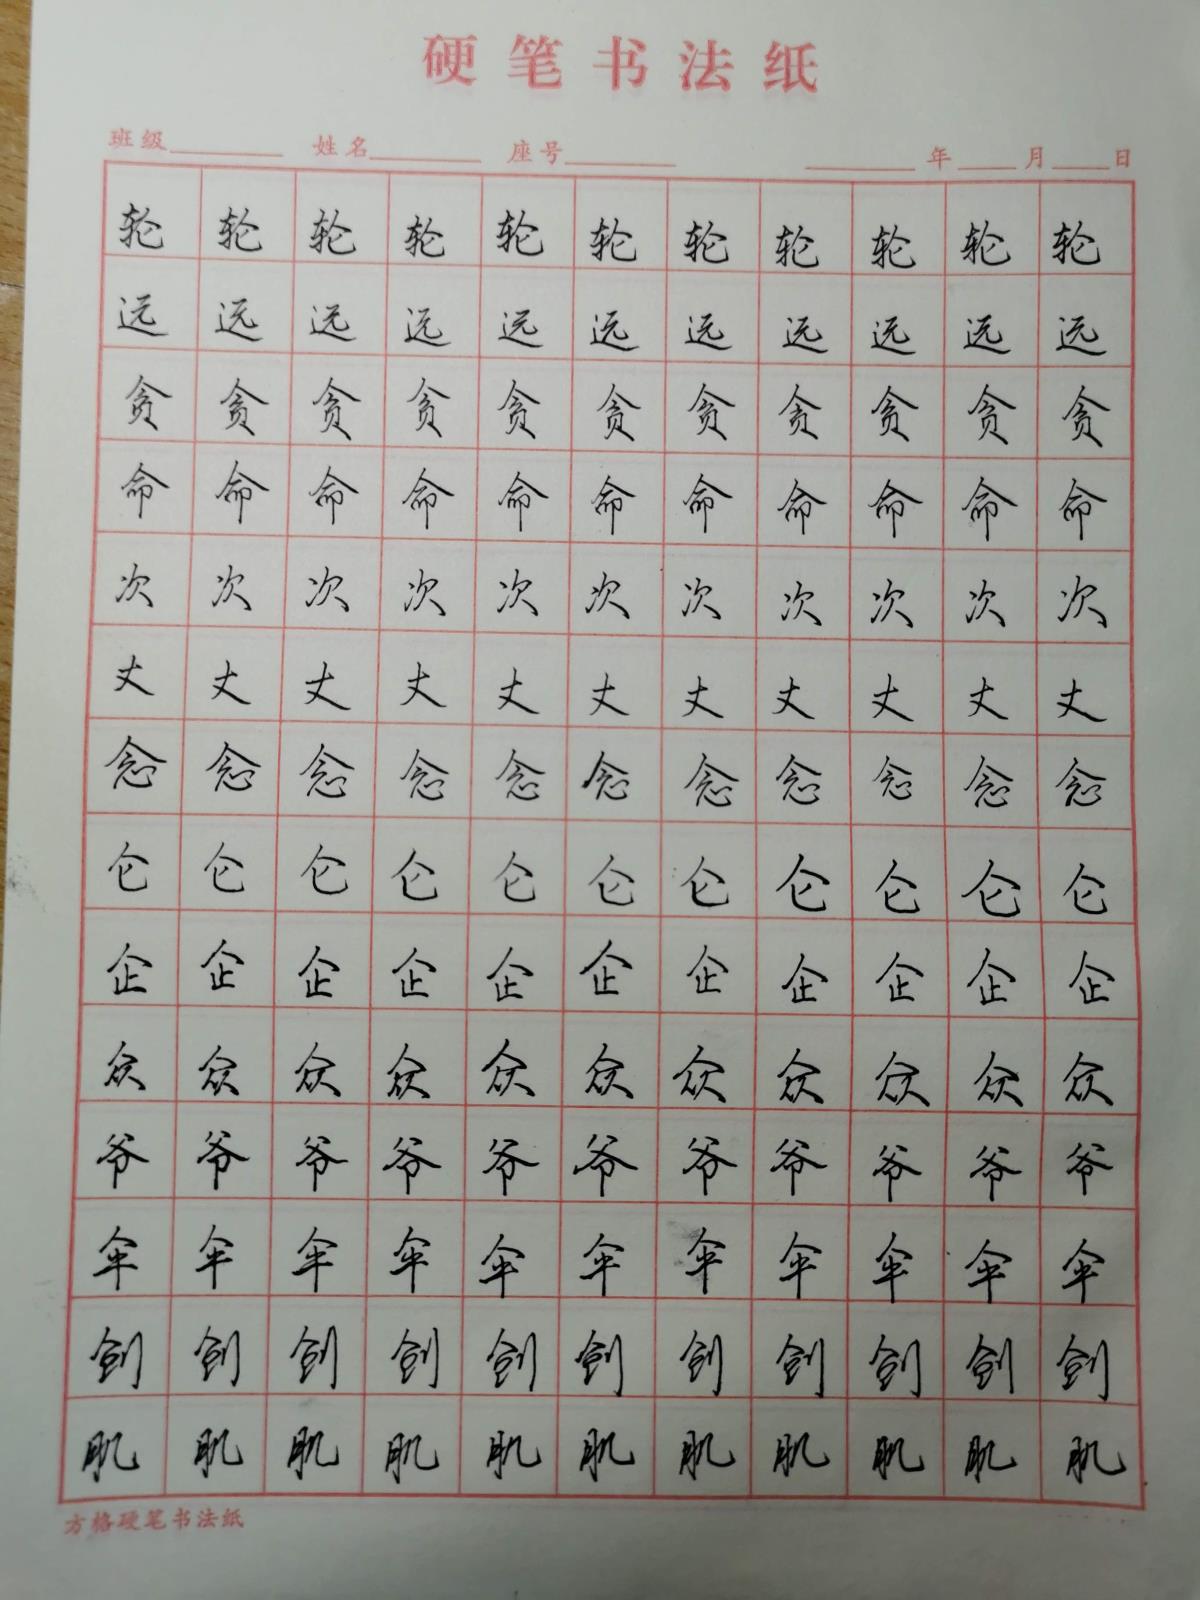 硬笔书法纸
班级 姓名 座号 年 月 日
轮 轮 轮 轮 轮 轮 轮 轮 轮 轮 轮
远 远 远 远 远 远 远 远 远 远 远
贪 贪 贪 贪 贪 贪 贪 贪 贪 贪 贪
命 命 命 命 命 命 命 命 命 命 命
次 次 次 次 次 次 次 次 次 次 次
丈 丈 丈 丈 丈 丈 丈 丈 丈 丈 丈
念 念 念 念 念 念 念 念 念 念 念
仑 仑 仑 仑 仑 仑 仑 仑 仑 仑 仑
企 企 企 企 企 企 企 企 企 企 企
众 众 众 众 众 众 众 众 众 众 众
爷 爷 爷 爷 爷 爷 爷 爷 爷 爷 爷
伞 伞 伞 伞 伞 伞 伞 伞 伞 伞 伞
剑 剑 剑 剑 剑 剑 剑 剑 剑 剑 剑
肌 肌 肌 肌 肌 肌 肌 肌 肌 肌 肌
方格硬笔书法纸